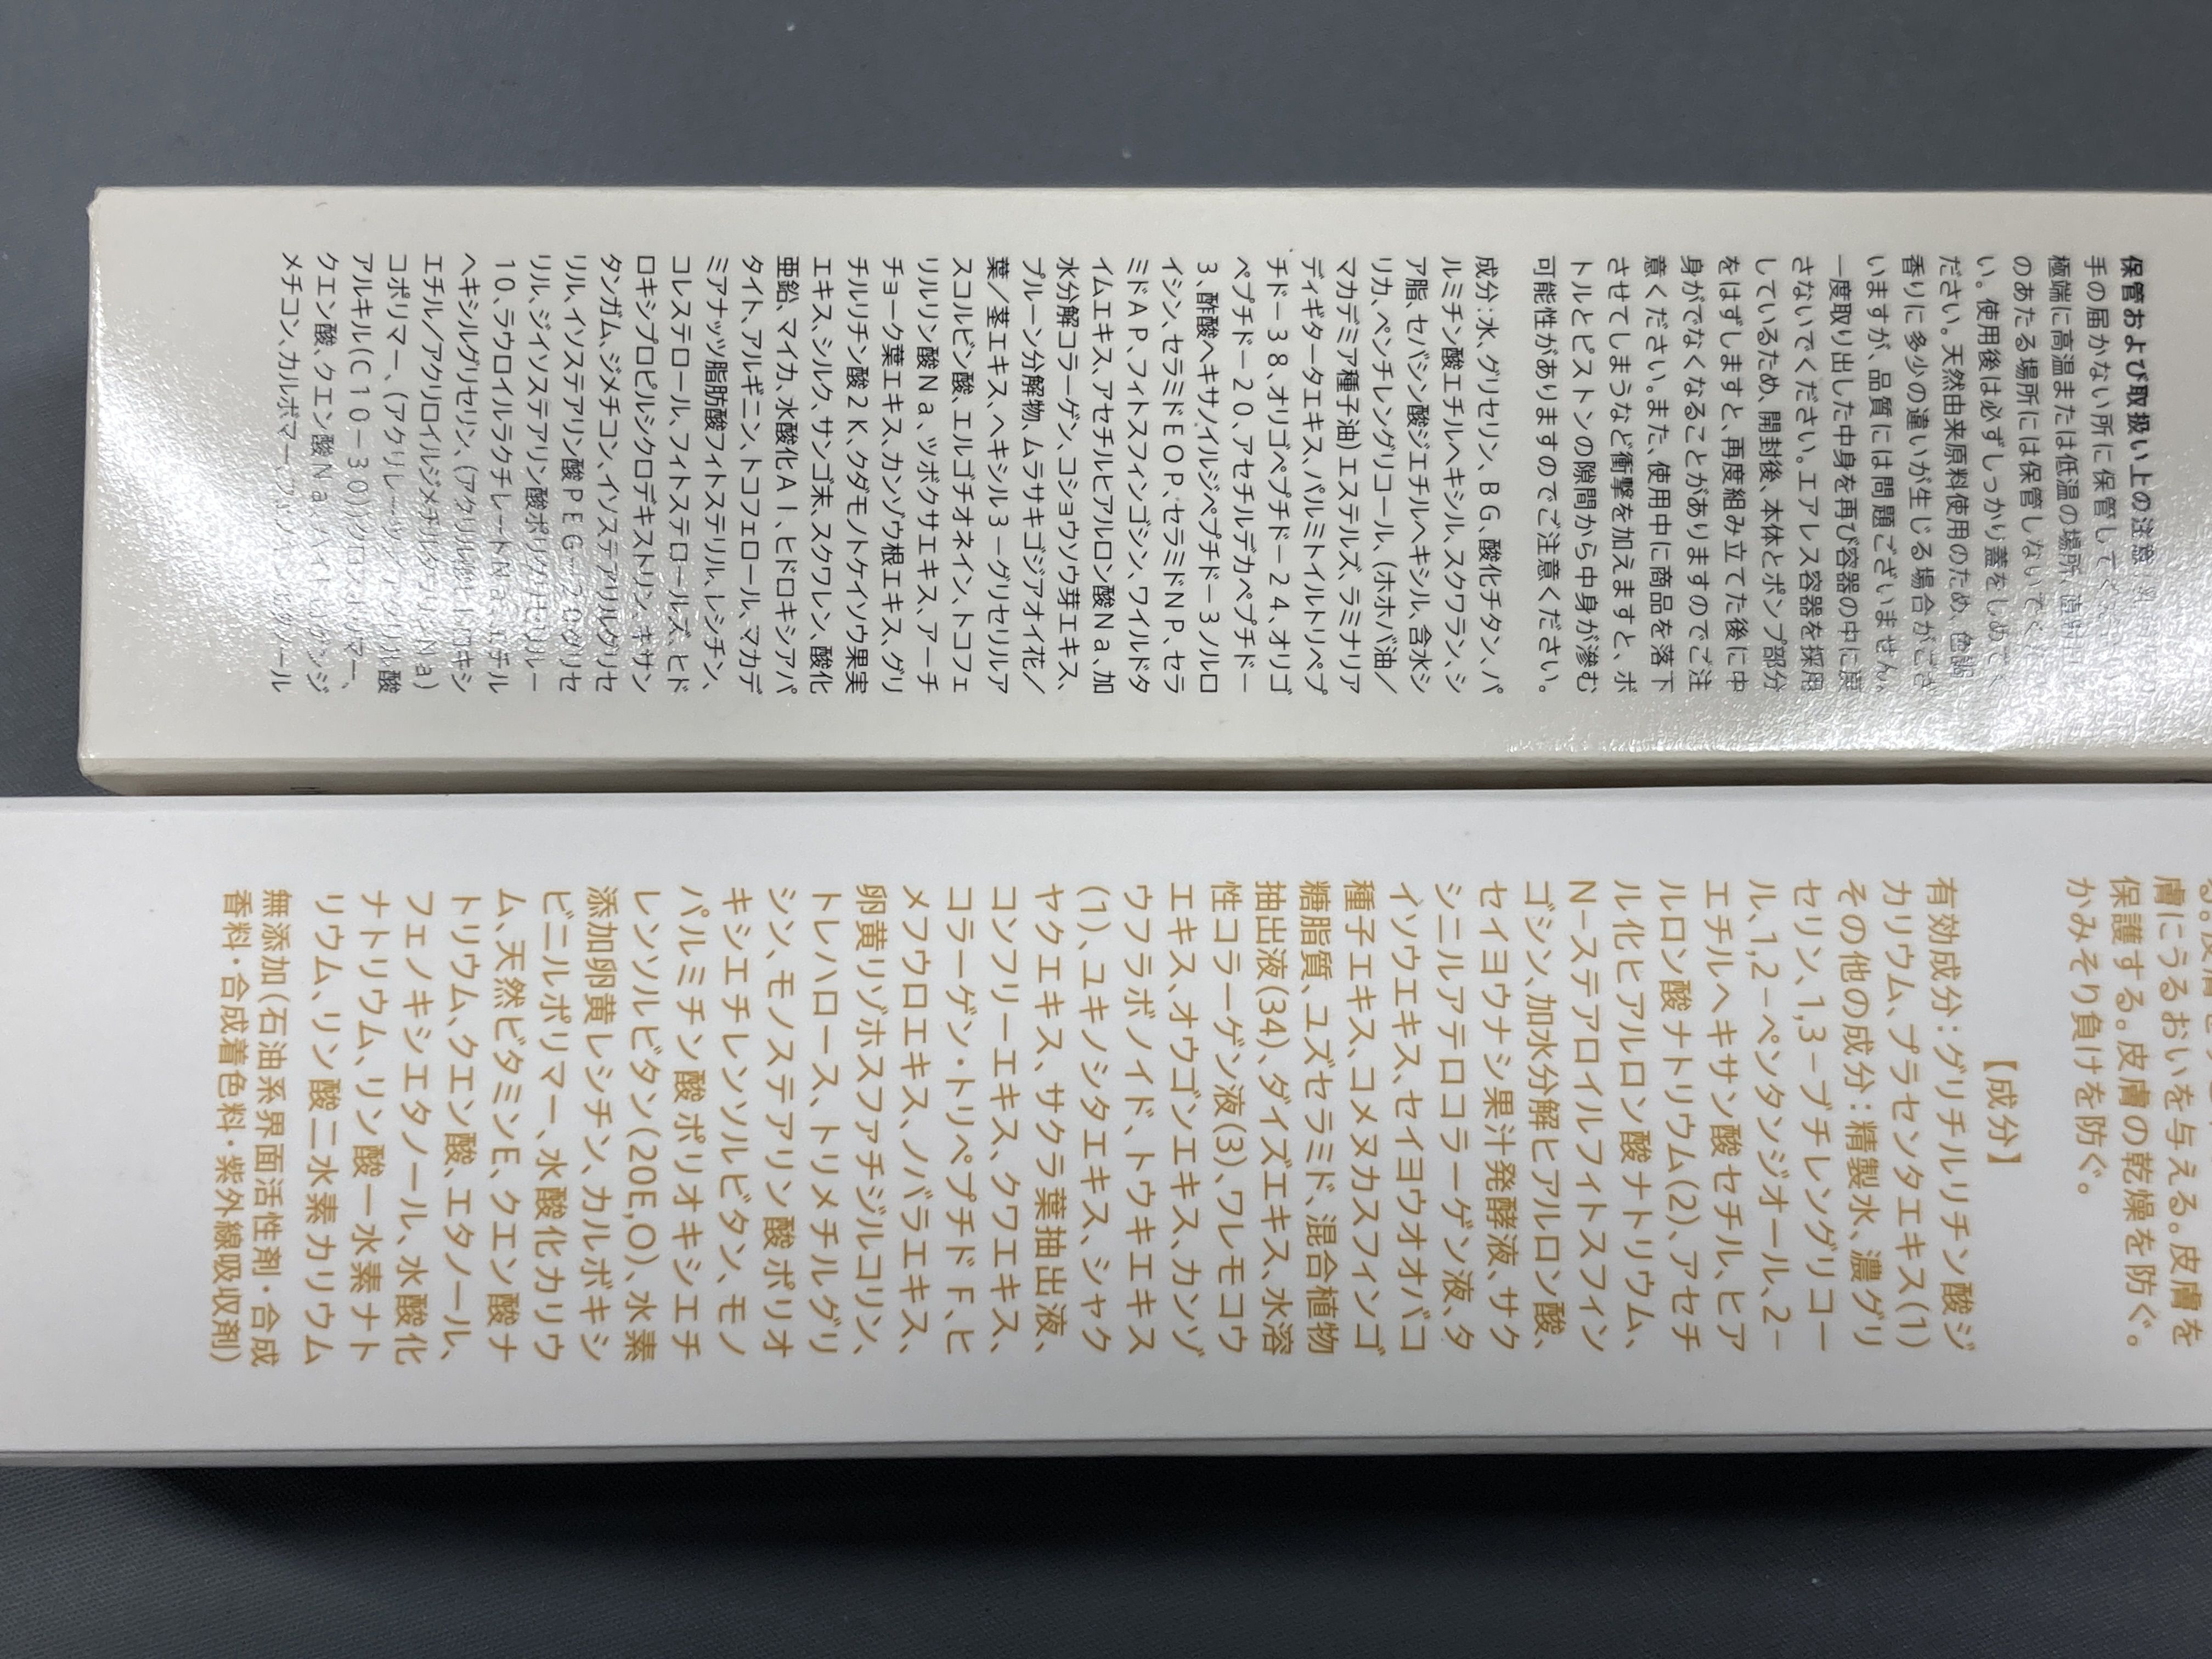 保管および取扱い上の注意
手の届かない所に保管してく
極端に高温または低温の場所、直射
のあたる場所には保管しないでく
い。使用後は必ずしっかり蓋をしめて
ださい。天然由来原料使用のため、色調
香りに多少の違いが生じる場合がござ
いますが、品質には問題ございません。
一度取り出した中身を再び容器の中に戻
さないでください。エアレス容器を採用
しているため、開封後、本体とポンプ部分
をはずしますと、再度組み立てた後に中
身がでなくなることがありますのでご注
意ください。また、使用中に商品を落下
させてしまうなど衝撃を加えますと、ボ
トルとピストンの隙間から中身が滲む
可能性がありますのでご注意ください。
成分:水、グリセリン、BG、酸化チタン、パ
ルミチン酸エチルヘキシル、スクワラン、シ
ア脂、セバシン酸ジエチルヘキシル、含水シ
リカ、ペンチレングリコール、(ホホバ油/
マカデミア種子油)エステルズ、ラミナリア
ディギタータエキス、パルミトイルトリペプ
チド-38、オリゴペプチド-24、オリゴ
ペプチド-20、アセチルデカペプチド-
3、酢酸ヘキサノイルジペプチド-3ノルロ
イシン、セラミドEOP、セラミドNP、セラ
ミドAP、フィトスフィンゴシン、ワイルドタ
イムエキス、アセチルヒアルロン酸Na、加
水分解コラーゲン、コショウソウ芽エキス、
プルーン分解物、ムラサキゴジアオイ花/
葉/茎エキス、ヘキシル3-グリセリルア
スコルビン酸、エルゴチオネイン、トコフェ
リルリン酸Na、ツボクサエキス、アーチ
チョーク葉エキス、カンゾウ根エキス、グリ
チルリチン酸2K、クダモノトケイソウ果実
エキス、シルク、サンゴ末、スクワレン、酸化
亜鉛、マイカ、水酸化Al、ヒドロキシアパ
タイト、アルギニン、トコフェロール、マカデ
ミアナッツ脂肪酸フィトステリル、レシチン、
コレステロール、フィトステロールズ、ヒド
ロキシプロピルシクロデキストリン、キサン
タンガム、ジメチコン、イソステアリルグリセ
リル、イソステアリン酸PEG-20グリセ
リル、ジイソステアリン酸ポリグリセリル-
10、ラウロイルラクチレートNa、エチル
ヘキシルグリセリン、(アクリル酸ヒドロキシ
エチル/アクリロイルジメチルタウリンNa)
コポリマー、(アクリレーツ/アクリル酸
アルキル(C10-30))クロスポリマー、
クエン酸、クエン酸Na、ベヘニルゲンジ
メチコン、カルボマー、フェノキシエタノール
る。皮膚
膚にうるおいを与える。皮膚を
保護する。皮膚の乾燥を防ぐ。
かみそり負けを防ぐ。
【成分】
有効成分:グリチルリチン酸ジ
カリウム、プラセンタエキス(1)
その他の成分:精製水、濃グリ
セリン、1,3-ブチレングリコー
ル、1,2-ペンタンジオール、2-
エチルヘキサン酸セチル、ヒア
ルロン酸ナトリウム(2)、アセチ
ル化ヒアルロン酸ナトリウム、
N-ステアロイルフィトスフィン
ゴシン、加水分解ヒアルロン酸、
セイヨウナシ果汁発酵液、サク
シニルアテロコラーゲン液、タ
イソウエキス、セイヨウオオバコ
種子エキス、コメヌカスフィンゴ
糖脂質、ユズセラミド、混合植物
抽出液(34)、ダイズエキス、水溶
性コラーゲン液(3)、ワレモコウ
エキス、オウゴンエキス、カンゾ
ウフラボノイド、トウキエキス
(1)、ユキノシタエキス、シャク
ヤクエキス、サクラ葉抽出液、
コンフリーエキス、クワエキス、
コラーゲン・トリペプチド F、ヒ
メフウロエキス、ノバラエキス、
卵黄リゾホスファチジルコリン、
トレハロース、トリメチルグリ
シン、モノステアリン酸ポリオ
キシエチレンソルビタン、モノ
パルミチン酸ポリオキシエチ
レンソルビタン(20E,O)、水素
添加卵黄レシチン、カルボキシ
ビニルポリマー、水酸化カリウ
ム、天然ビタミンE、クエン酸ナ
トリウム、クエン酸、エタノール、
フェノキシエタノール、水酸化
ナトリウム、リン酸一水素ナト
リウム、リン酸二水素カリウム
無添加(石油系界面活性剤・合成
香料・合成着色料・紫外線吸収剤)